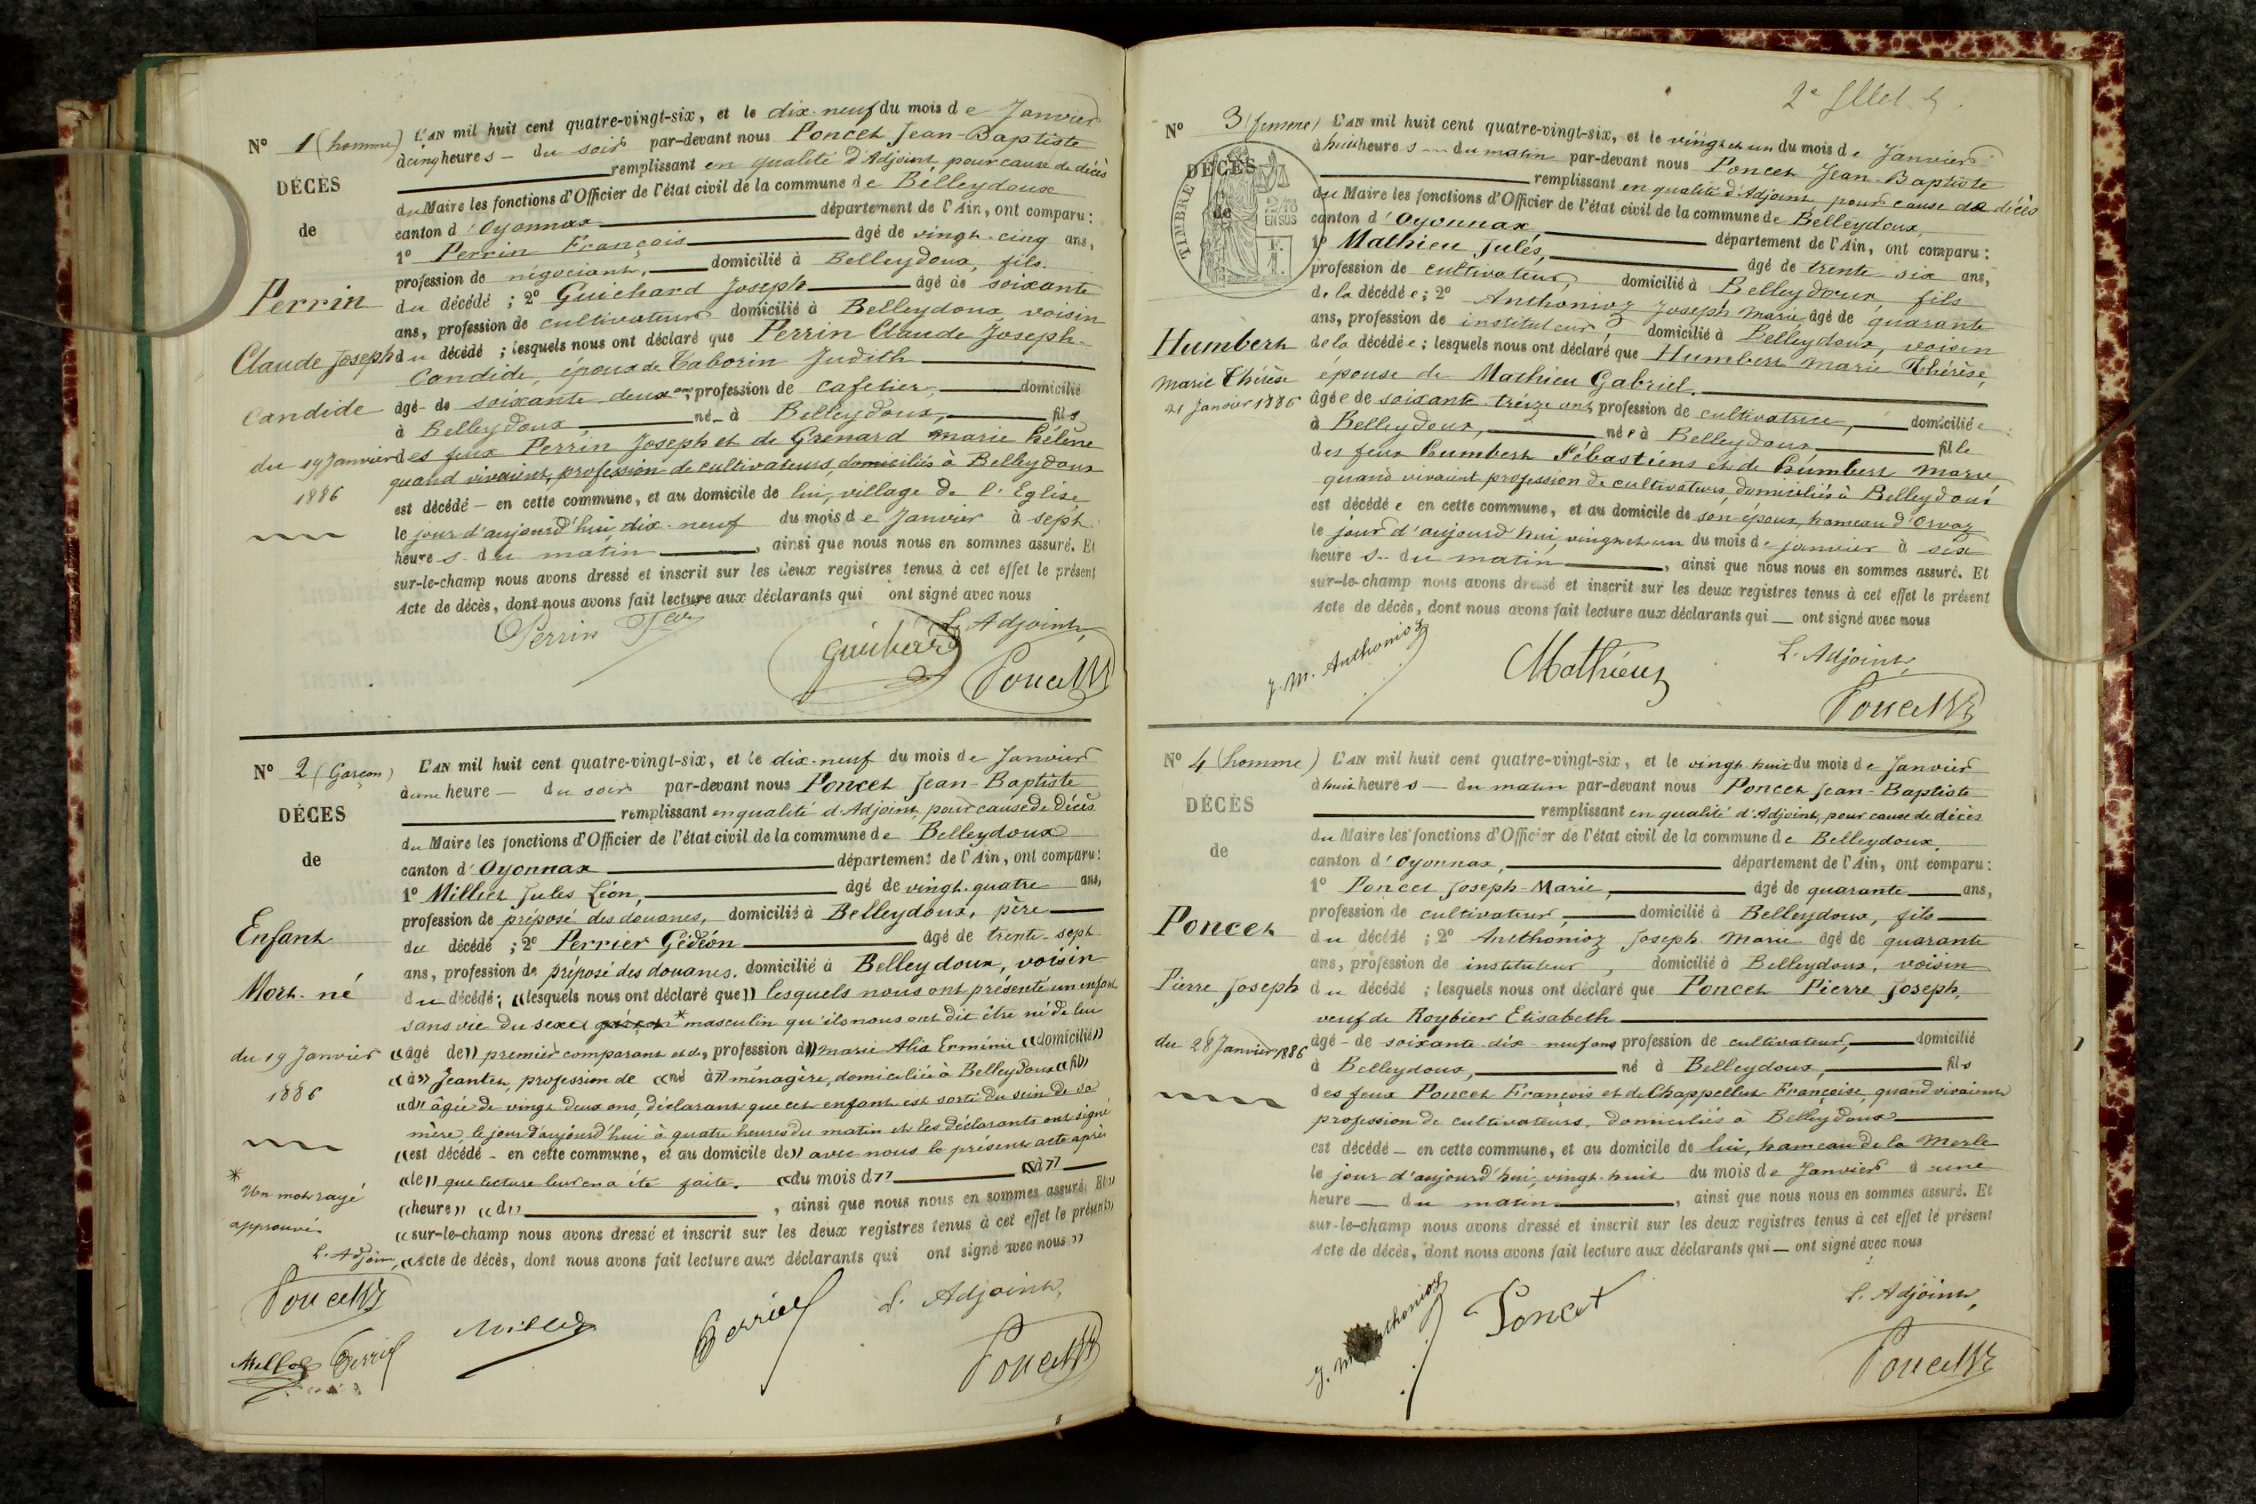 Nº 1 (homme)
DÉCÈS
de
Perrin
Claude Joseph
Candide
du 19 Janvier
1886
L'AN mil huit cent quatre-vingt-six, et le dix-neuf du mois de Janvier
à cinq heures - du soir par-devant nous Poncet Jean-Baptiste
remplissant en qualité d'Adjoint pour cause de décès
du Maire les fonctions d'Officier de l'état civil de la commune de Belleydoux
canton d'Oyonnax département de l'Ain, ont comparu :
1º Perrin François âgé de vingt-cinq ans,
profession de négociant, domicilié à Belleydoux, fils
du décédé ; 2º Guichard Joseph âgé de soixante
ans, profession de cultivateur domicilié à Belleydoux, voisin
du décédé ; lesquels nous ont déclaré que Perrin Claude Joseph
Candide, époux de Taborin Judith
âgé - de soixante-deux ans, profession de cafetier, domicilié
à Belleydoux, né - à Belleydoux, fils
des feux Perrin Joseph et de Grenard Marie Hélène
quand vivaient, profession de cultivateurs, domiciliés à Belleydoux
est décédé - en cette commune, et au domicile de lui, village de l'Eglise
le jour d'aujourd'hui, dix-neuf du mois de Janvier à sept
heures - du matin, ainsi que nous nous en sommes assuré. Et
sur-le-champ nous avons dressé et inscrit sur les deux registres tenus à cet effet le présent
Acte de décès, dont nous avons fait lecture aux déclarants qui ont signé avec nous
Perrin Fçois
Guichard
L'Adjoint,
Poncet
Nº 2 (Garçon)
DÉCÈS
de
Enfant
Mort-né
du 19 Janvier
1886
* Un mot rayé
approuvé.
L'Adjoint,
Poncet
Millet Perrier
L'AN mil huit cent quatre-vingt-six, et le dix-neuf du mois de Janvier
à une heure - du soir par-devant nous Poncet Jean-Baptiste
remplissant en qualité d'Adjoint, pour cause de décès
du Maire les fonctions d'Officier de l'état civil de la commune de Belleydoux
canton d'Oyonnax département de l'Ain, ont comparu :
1º Millet Jules Léon, âgé de vingt-quatre ans,
profession de préposé des douanes, domicilié à Belleydoux, père
du décédé ; 2º Perrier Gédéon âgé de trente-sept
ans, profession de préposé des douanes. domicilié à Belleydoux, voisin
du décédé ; «lesquels nous ont déclaré que» lesquels nous ont présenté un enfant
sans vie du sexe * masculin qu'ils nous ont dit être né de lui
«âgé de» premier comparant et de, profession d» Marie Alia Erminie «domicilié»
«à» Jeantet, profession de «né à» ménagère, domiciliée à Belleydoux «fil»
«d» âgée de vingt deux ans, déclarant que cet enfant est sorti du sein de sa
mère, le jour d'aujourd'hui à quatre heures du matin et les déclarants ont signé
«est décédé - en cette commune, et au domicile de» avec nous le présent acte après
«le» que lecture leur en a été faite. «du mois d» «à»
«heure» «d», ainsi que nous nous en sommes assuré. Et»
«sur-le-champ nous avons dressé et inscrit sur les deux registres tenus à cet effet le présent»
«Acte de décès, dont nous avons fait lecture aux déclarants qui ont signé avec nous»
Millet
Perrier
L'Adjoint,
Poncet
2e fllet.
Nº 3 (femme)
DÉCÈS
de
TIMBRE
2/10 EN SUS
Humbert
Marie Thérèse
21 Janvier 1886
L'AN mil huit cent quatre-vingt-six, et le vingt et un du mois de Janvier
à huit heures - du matin par-devant nous Poncet Jean-Baptiste
remplissant en qualité d'Adjoint, pour cause de décès
du Maire les fonctions d'Officier de l'état civil de la commune de Belleydoux,
canton d'Oyonnax, département de l'Ain, ont comparu :
1º Mathieu Julés, âgé de trente six ans,
profession de cultivateur, domicilié à Belleydoux, fils
de la décédée ; 2º Anthonioz Joseph Marie âgé de quarante
ans, profession de instituteur, domicilié à Belleydoux, voisin
de la décédée ; lesquels nous ont déclaré que Humbert Marie Thérèse,
épouse de Mathieu Gabriel.
âgée de soixante-treize ans, profession de cultivatrice, domiciliée
à Belleydoux, née à Belleydoux fille
des feux Humbert Sébastiens et de Humbert Marie
quand vivaient profession de cultivateurs, domiciliés à Belleydoux
est décédée en cette commune, et au domicile de son époux, hameau d'Orvaz
le jour d'aujourd'hui, vingt et un du mois de janvier à six
heures - du matin, ainsi que nous nous en sommes assuré. Et
sur-le-champ nous avons dressé et inscrit sur les deux registres tenus à cet effet le présent
Acte de décès, dont nous avons fait lecture aux déclarants qui ont signé avec nous
J. M. Anthonioz
Mathieu
L'Adjoint,
Poncet
Nº 4 (homme)
DÉCÈS
de
Poncet
Pierre Joseph
du 28 Janvier 1886
L'AN mil huit cent quatre-vingt-six, et le vingt-huit du mois de Janvier
à huit heures - du matin par-devant nous Poncet Jean-Baptiste
remplissant en qualité d'Adjoint, pour cause de décès
du Maire les fonctions d'Officier de l'état civil de la commune de Belleydoux,
canton d'Oyonnax, département de l'Ain, ont comparu :
1º Poncet Joseph-Marie, âgé de quarante ans,
profession de cultivateur, domicilié à Belleydoux, fils
du décédé ; 2º Anthonioz Joseph Marie âgé de quarante
ans, profession de instituteur, domicilié à Belleydoux, voisin
du décédé ; lesquels nous ont déclaré que Poncet Pierre Joseph,
veuf de Roybier Elisabeth
âgé - de soixante-dix-neuf ans profession de cultivateur, domicilié
à Belleydoux, né à Belleydoux, fils
des feux Poncet François et de Chappellut Françoise, quand vivaient
profession de cultivateurs, domiciliés à Belleydoux
est décédé - en cette commune, et au domicile de lui, hameau de la Merle
le jour d'aujourd'hui, vingt-huit du mois de Janvier à une
heure - du matin, ainsi que nous nous en sommes assuré. Et
sur-le-champ nous avons dressé et inscrit sur les deux registres tenus à cet effet le présent
Acte de décès, dont nous avons fait lecture aux déclarants qui - ont signé avec nous
J. M. Anthonioz
Poncet
L'Adjoint,
Poncet